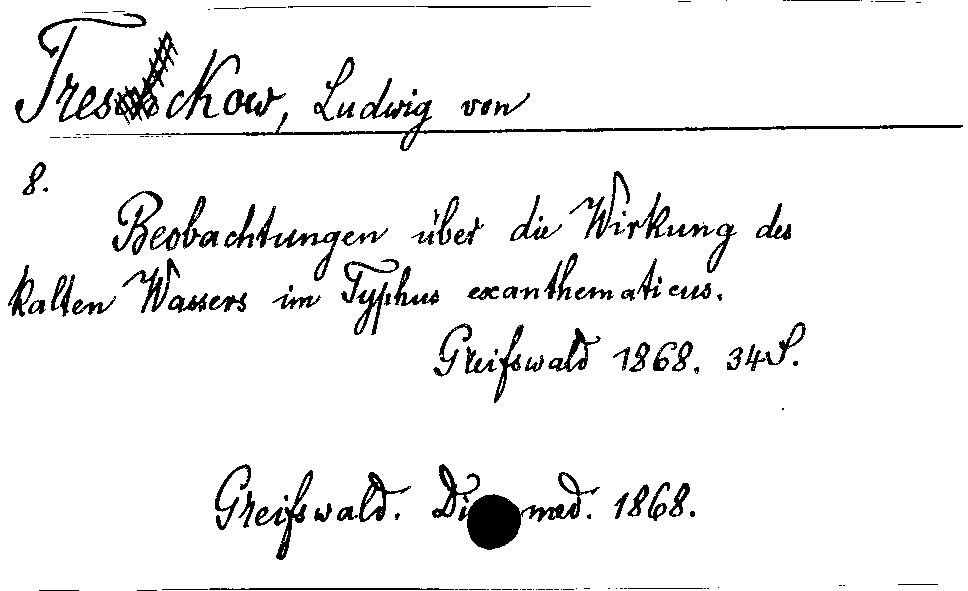 Tresckow, Ludwig von
8.
Beobachtungen über die Wirkung des
kalten Wassers im Typhus exanthematicus.
Greifswald 1868. 34 S.
Greifswald. med. 1868.